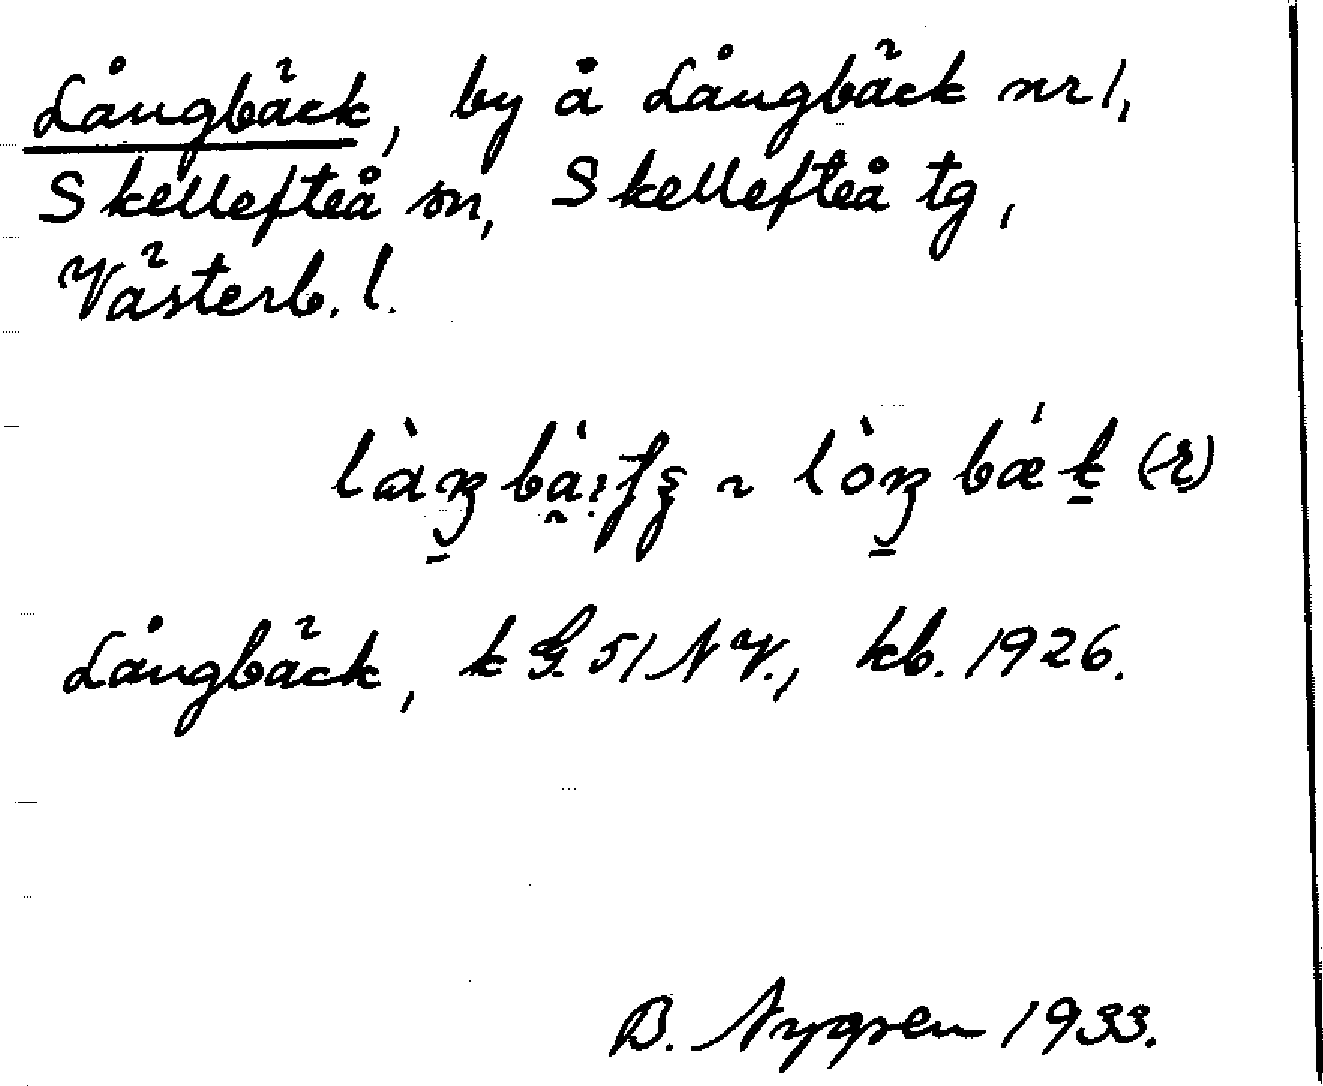 Långbäck, by å Långbäck nr 1,
Skellefteå sn, Skellefteå tg,
Västerb. l.
Långbäck, k G. 51 NV., kb. 1926.
B. Nygren 1933.